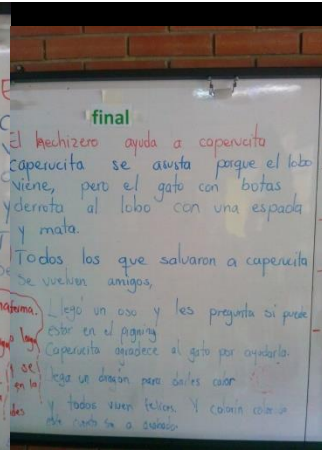 final
El hechizero ayuda a caperucita
Caperucita se asusta porque el lobo
viene, pero el gato con botas
derrota al lobo con una espada
y mata.
Todos los que salvaron a caperucita
se vuelven amigos,
Llegó un oso y les pregunta si puede
estar en el
Caperucita agradece al gato por ayudarla.
llega un dragon para darles calor
y todos viven felices. Y colorín colorado
este cuento se a acabado.